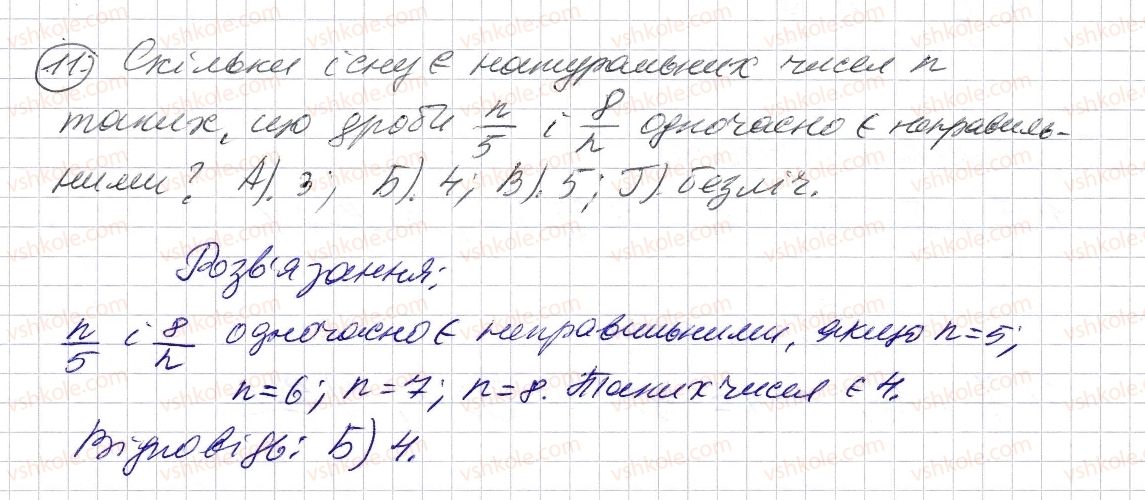 11) Скільки існує натуральних чисел n
таких, що дроби n/5 і 8/n одночасно є неправиль-
ними? А). 3; Б). 4; В). 5; Г). безліч.
Розв'язання:
n/5 і 8/n одночасно є неправильними, якщо n=5;
n=6; n=7; n=8. Таких чисел є 4.
Відповідь: Б) 4.